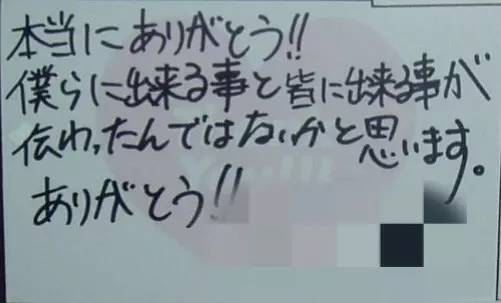 本当にありがとう!!
僕らに出来る事と皆に出来る事が
伝わったんではないかと思います。
ありがとう!!